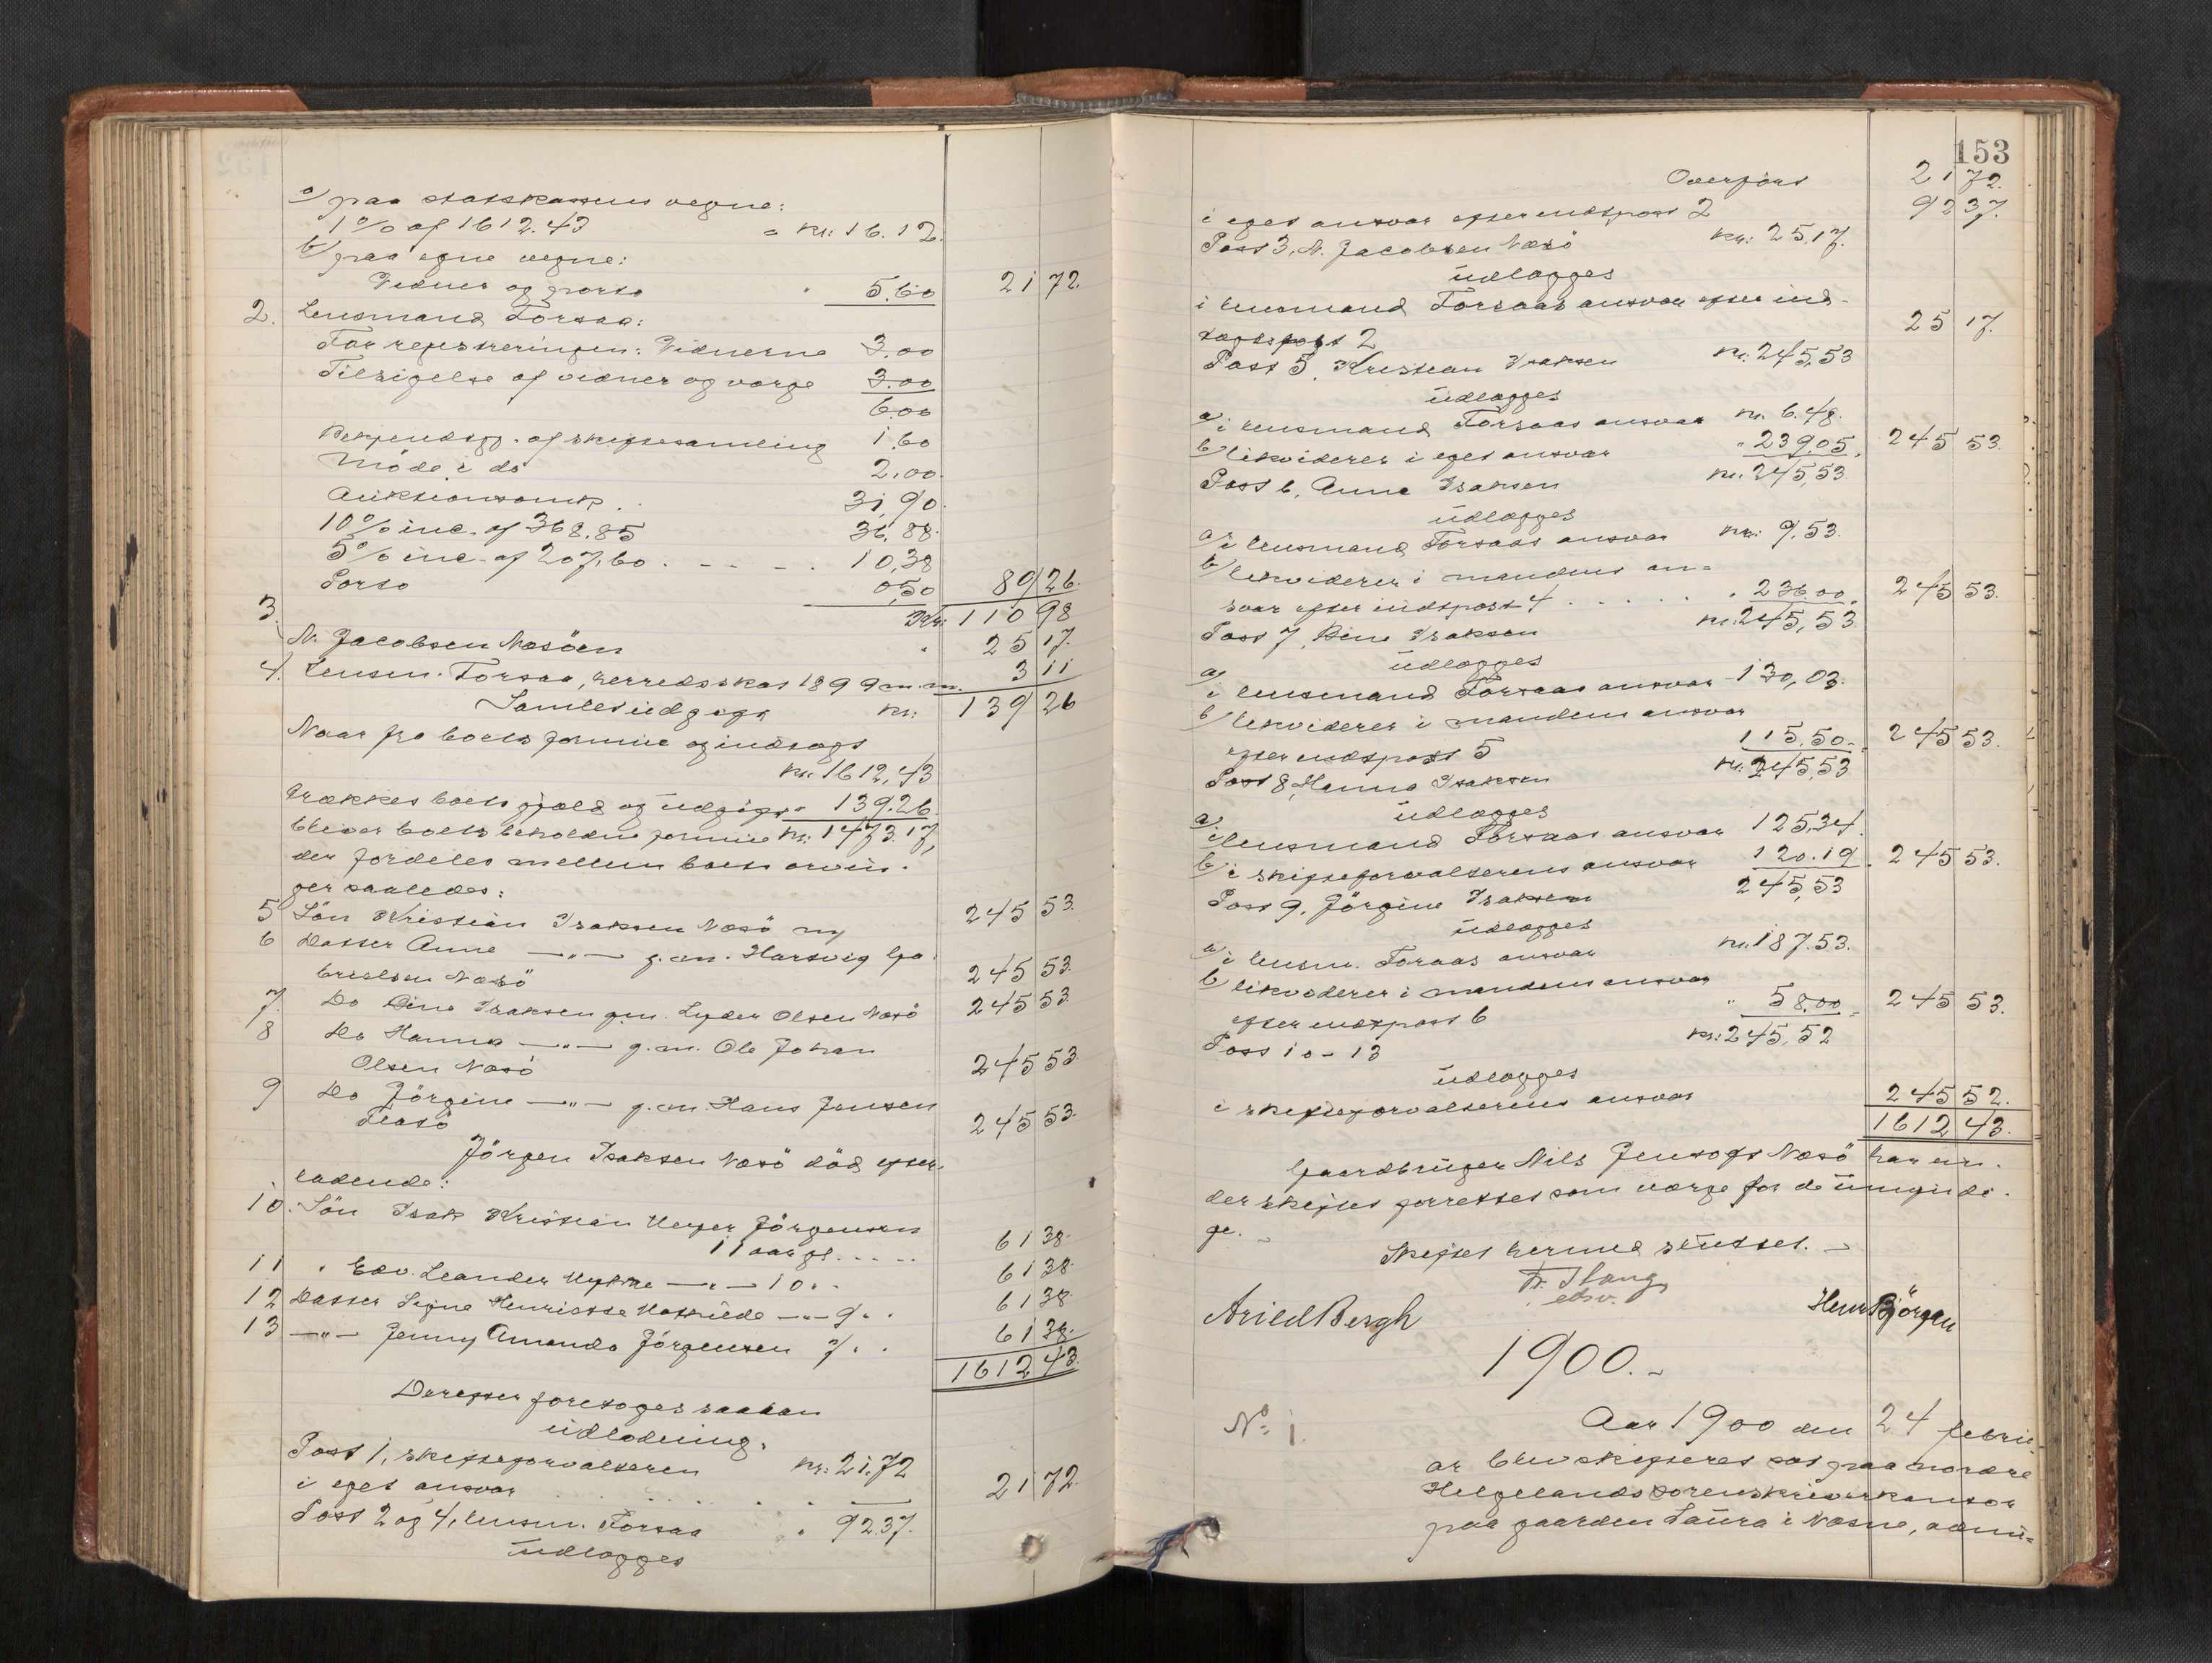 a) paa statskassens vegne:
1 % of 1612.43 " kr: 16.12.
b) paa egne vegne:
Vidner og porto " 5.60 21 72.
2. Lensmand Forsaa:
For registreringen: Vidnerne 3.00
Tilsigelse af vidner og værge 3.00
6.00
Bekjendtgj. af skiftesamling 1.60
Møde i do 2.00
Auktionsomk. . 31,90.
10 % ink. af 368.85 36.88.
5 % ink. af 207.60 . - - - . 10,38
Porto 0,50 89 26.
Tils. 110 98
3. N. Jacobsen Næsöen " 25 17.
4. Lensm. Forsaa, herredsskat 1899 m.m. 3 11
Samlet udgift kr: 139 26
Naar fra boets formue og indtægt
kr. 1612,43
trækkes boets gjæld og udgifter " 139.26.
bliver boets beholdne formue kr. 1473.17,
der fordeles mellem boets arvin-
ger saaledes:
5 Sön Kristian Isaksen Næsö my 245 53.
6 Datter Anne —"— g.m. Hartvig Ga-
brielsen Næsö 245 53.
7. Do Dina Isaksen g.m. Lyder Olsen Næsö 245 53
8 Do Hanna —"— g.m. Ole Johan
Olsen Næsö 245 53.
9 Do Jörgine —"— g.m. Hans Jensen
245 53.
Jörgen Isaksen Næsö död efter-
ladende:
10. Sön Isak Kristian Meyer Jörgensen
11 aar gl. . . . . 61 38.
11 " Edv. Leander —"— 10 " " 61 38.
12 Datter Signe Henriette —"— 9 " . 61 38
13 —"— Jenny Amanda Jörgensen 7 " . 61 38.
1612 43.
Derefter foretoges saadan
udlodning.
Post 1, skifteforvalteren kr: 21.72
i eget ansvar . . . . . . 21 72.
Post 2 og 4, lensm. Forsaa " 92.37.
udlægges
153
Overført 21 72.
i eget ansvar efter indtpost 2 92 37.
Post 3, N. Jacobsen Næsö kr: 25.17.
udlægges
i lensmand Forsaas ansvar efter ind-
tægtspost 2 25 17.
Post 5, Kristian Isaksen kr. 245,53
udlægges
a) i lensmand Forsaas ansvar kr. 6.48.
b) likviderer i eget ansvar " 239,05. 245 53.
Post 6, Anne Isaksen kr. 245,53.
udlægges
a) i lensmand Forsaas ansvar kr: 9,53.
b) likviderer i mandens an-
svar efter indtpost 4 . . . . . " 236.00. 245 53.
Post 7, Dina Isaksen kr. 245,53
udlægges
a) i lensmand Forsaas ansvar - 130,03.
b) likviderer i mandens ansvar
efter indtpost 5 115.50.- 245 53.
Post 8, Hanna Isaksen kr. 245,53
udlægges
a) i lensmand Forsaas ansvar 125,34.
b) i skifteforvalterens ansvar 120.19. 245 53.
Post 9, Jörgine Isaksen 245,53
udlægges
a) i lensm. Forsaas ansvar kr. 187.53.
b) likviderer i mandens ansvar
efter indtpost 6 " 58.00 - 245 53.
Post 10 - 13 kr: 245,52
udlægges
i skifteforvalterens ansvar 245 52.
1612 43.
Gaardbruger Nils Næsö har un-
der skiftet forrettet som værge for de umyndi-
ge. -
Skiftet hermed sluttet. -
Fr. Stang
edsv.
Arild Bergh
Henr Bjørgan
1900. -
No 1.
Aar 1900 den 24 febru-
ar blev skifteret sat paa nordre
Helgelands sorenskriverkontor
paa gaarden Laura i Næsne, admi-